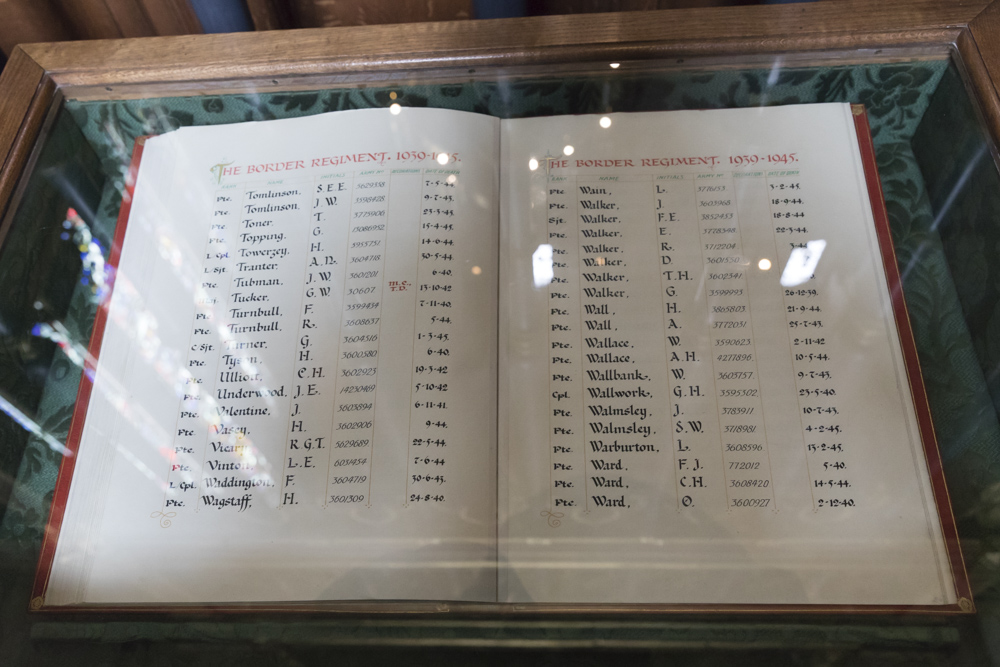 THE BORDER REGIMENT. 1939-1945.
RANK NAME INITIALS ARMY Nº DECORATIONS DATE OF DEATH
Pte. Tomlinson, S.E.E. 3629358 7-5-44
Pte. Tomlinson, J.W. 3598428 9-7-43.
Pte. Toner, T. 3773906 23-3-45.
Pte. Topping, G. 13086952 15-4-45.
L. Cpl. Towerzey, H. 5955751 14-6-44.
L. Sjt. Tranter, A.N. 3604718 30-5-44.
Tubman, J.W. 3601201 6-40.
Tucker, G.W. 30607 M.C. T.D. 13-10-42
Turnbull, F. 3599434 7-11-40.
Pte. Turnbull, R. 3608637 5-44.
C Sjt. Turner, G. 3604316 1-3-45.
Pte. Tyson, H. 3600380 6-40.
Pte. Ulliott, C.H. 3602923 19-3-42
Pte. Underwood, J.E. 14230469 5-10-42
Pte. Valentine, J. 3603894 6-11-41.
Pte. Vasey, H. 3602906 9-44.
Pte. Vicary, R.G.T. 5629689 22-5-44.
Pte. Vinton, L.E. 6031454 7-6-44
L. Cpl. Waddington, F. 3604719 30-6-43.
Pte. Wagstaff, H. 3601309 24-8-40.
THE BORDER REGIMENT. 1939-1945.
RANK NAME INITIALS ARMY Nº DECORATIONS DATE OF DEATH
Pte. Wain, L. 3718653 3-2-45.
Pte. Walker, J. 3603968 18-9-44.
Sjt. Walker, F.E. 3852453 18-8-44
Pte. Walker, E. 3778348 22-3-44.
Pte. Walker, R. 3712204
Pte. Walker, D.
Pte. Walker, T.H. 3602341
Pte. Walker, G. 3599993 26-12-39.
Pte. Wall, H. 3865803 21-9-44.
Pte. Wall, A. 3772051 25-7-43.
Pte. Wallace, W. 3590623 2-11-42
Pte. Wallace, A.H. 4277896 10-5-44.
Pte. Wallbank, W. 3603757 9-7-43.
Cpl. Wallwork, G.H. 3595302 23-5-40.
Pte. Walmsley, J. 3783911 10-7-43.
Pte. Walmsley, S.W. 3718981 4-2-45.
Pte. Warburton, L. 3608596 13-2-45.
Pte. Ward, F.J. 772012 5-40.
Pte. Ward, C.H. 3608420 14-5-44.
Pte. Ward, O. 3600927 2-12-40.